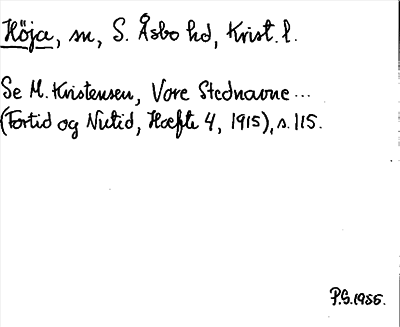 Höja, sn, S. Åsbo hd, Krist. l.
Se M. Kristensen, Vore Stednavne...
(Fortid og Nutid, Hæfte 4, 1915), s. 115.
P.G. 1956.